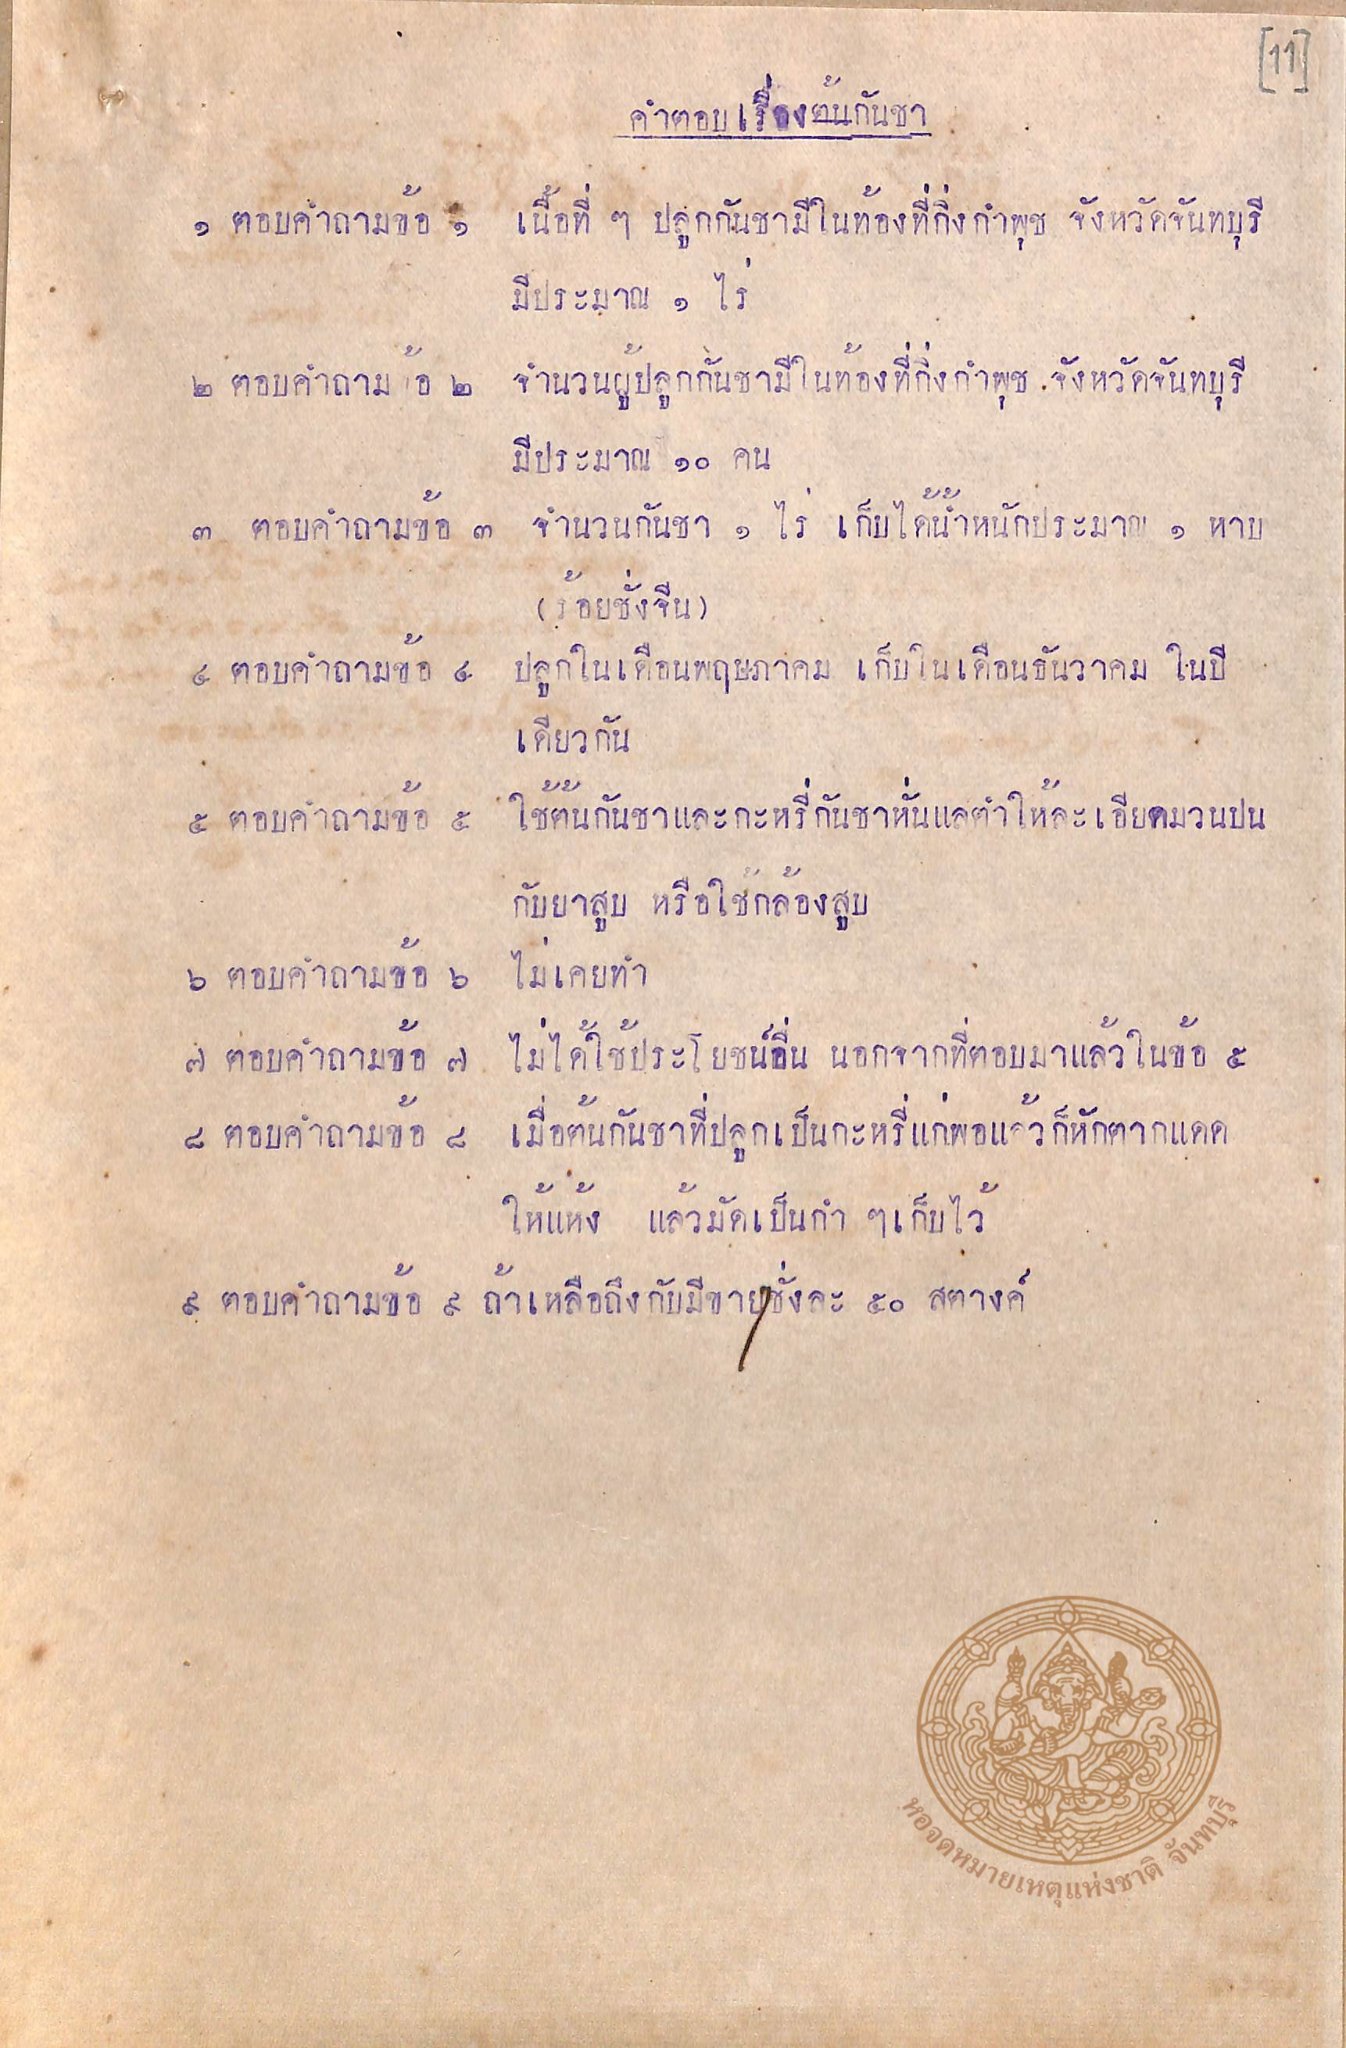 [11]
คำตอบเรื่องต้นกันชา
๑ ตอบคำถามข้อ ๑ เนื้อที่ ๆ ปลูกกันชามีในท้องที่กิ่งกำพุช จังหวัดจันทบุรี
มีประมาณ ๑ ไร่
๒ ตอบคำถามข้อ ๒ จำนวนผู้ปลูกกันชามีในท้องที่กิ่งกำพุช จังหวัดจันทบุรี
มีประมาณ ๑๐ คน
๓ ตอบคำถามข้อ ๓ จำนวนกันชา ๑ ไร่ เก็บได้น้ำหนักประมาณ ๑ หาบ
(ร้อยชั่งจีน)
๔ ตอบคำถามข้อ ๔ ปลูกในเดือนพฤษภาคม เก็บในเดือนธันวาคม ในปี
เดียวกัน
๕ ตอบคำถามข้อ ๕ ใช้ต้นกันชาและกะหรี่กันชาหั่นแลตำให้ละเอียดมวนปน
กับยาสูบ หรือใช้กล้องสูบ
๖ ตอบคำถามข้อ ๖ ไม่เคยทำ
๗ ตอบคำถามข้อ ๗ ไม่ได้ใช้ประโยชน์อื่น นอกจากที่ตอบมาแล้วในข้อ ๕
๘ ตอบคำถามข้อ ๘ เมื่อต้นกันชาที่ปลูกเป็นกะหรี่แก่พอแล้วก็หักตากแดด
ให้แห้ง แล้วมัดเป็นกำ ๆเก็บไว้
๙ ตอบคำถามข้อ ๙ ถ้าเหลือถึงกับมีขายชั่งละ ๕๐ สตางค์
หอจดหมายเหตุแห่งชาติ จันทบุรี